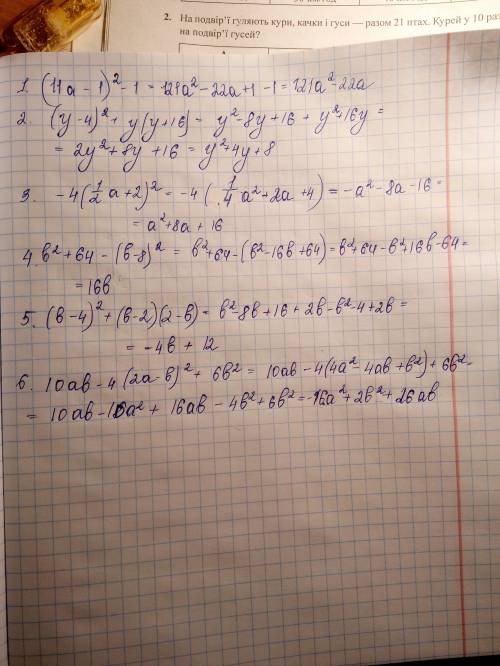 2. На подвір'ї гуляють кури, качки і гуси — разом 21 птах. Курей у 10 раз
на подвір'ї гусей?
1. (11a - 1)² - 1 = 121a² - 22a + 1 - 1 = 121a² - 22a
2. (y - 4)² + y(y + 16) = y² - 8y + 16 + y² + 16y =
= 2y² + 8y + 16 = y² + 4y + 8
3. -4(1/2 a + 2)² = -4(1/4 a² + 2a + 4) = -a² - 8a - 16 =
= a² + 8a + 16
4. b² + 64 - (b - 8)² = b² + 64 - (b² - 16b + 64) = b² + 64 - b² + 16b - 64 =
= 16b
5. (b - 4)² + (b - 2)(2 - b) = b² - 8b + 16 + 2b - b² - 4 + 2b =
= -4b + 12
6. 10ab - 4(2a - b)² + 6b² = 10ab - 4(4a² - 4ab + b²) + 6b² =
= 10ab - 16a² + 16ab - 4b² + 6b² = -16a² + 2b² + 26ab